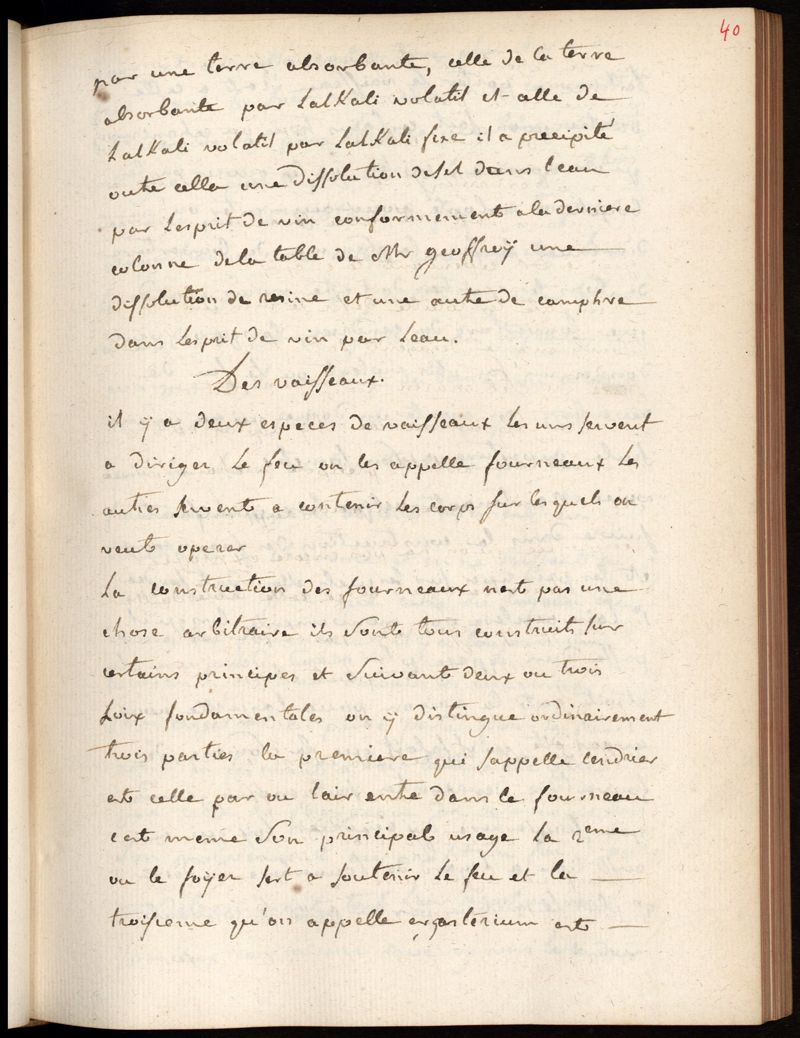 40
par une terre absorbante, celle de la terre
absorbante par Lalkali volatil et celle de
Lalkali volatil par Lalkali fixe il a precipité
outre cella une dissolution de sel dans l'eau
par Lesprit de vin conformement a la derniere
colonne de la table de Mr geoffroÿ une
dissolution de resine et une autre de camphre
dans Lesprit de vin par Leau.
Des vaisseaux.
il ÿ a deux especes de vaisseaux Les uns servent
a diriger Le feu on les appelle fourneaux Les
autres servent a contenir Les corps sur lesquels on
veut operer
La construction des fourneaux n'est pas une
chose arbitraire ils Sont tous construits sur
certains principes et Suivant deux ou trois
Loix fondamentales on ÿ distingue ordinairement
trois parties la premiere qui s'appelle Cendrier
est celle par ou l'air entre dans le fourneau
c'est meme Son principal usage La 2eme
ou le foÿer sert a soutenir Le feu et la
troisieme qu'on appelle ergasterium est